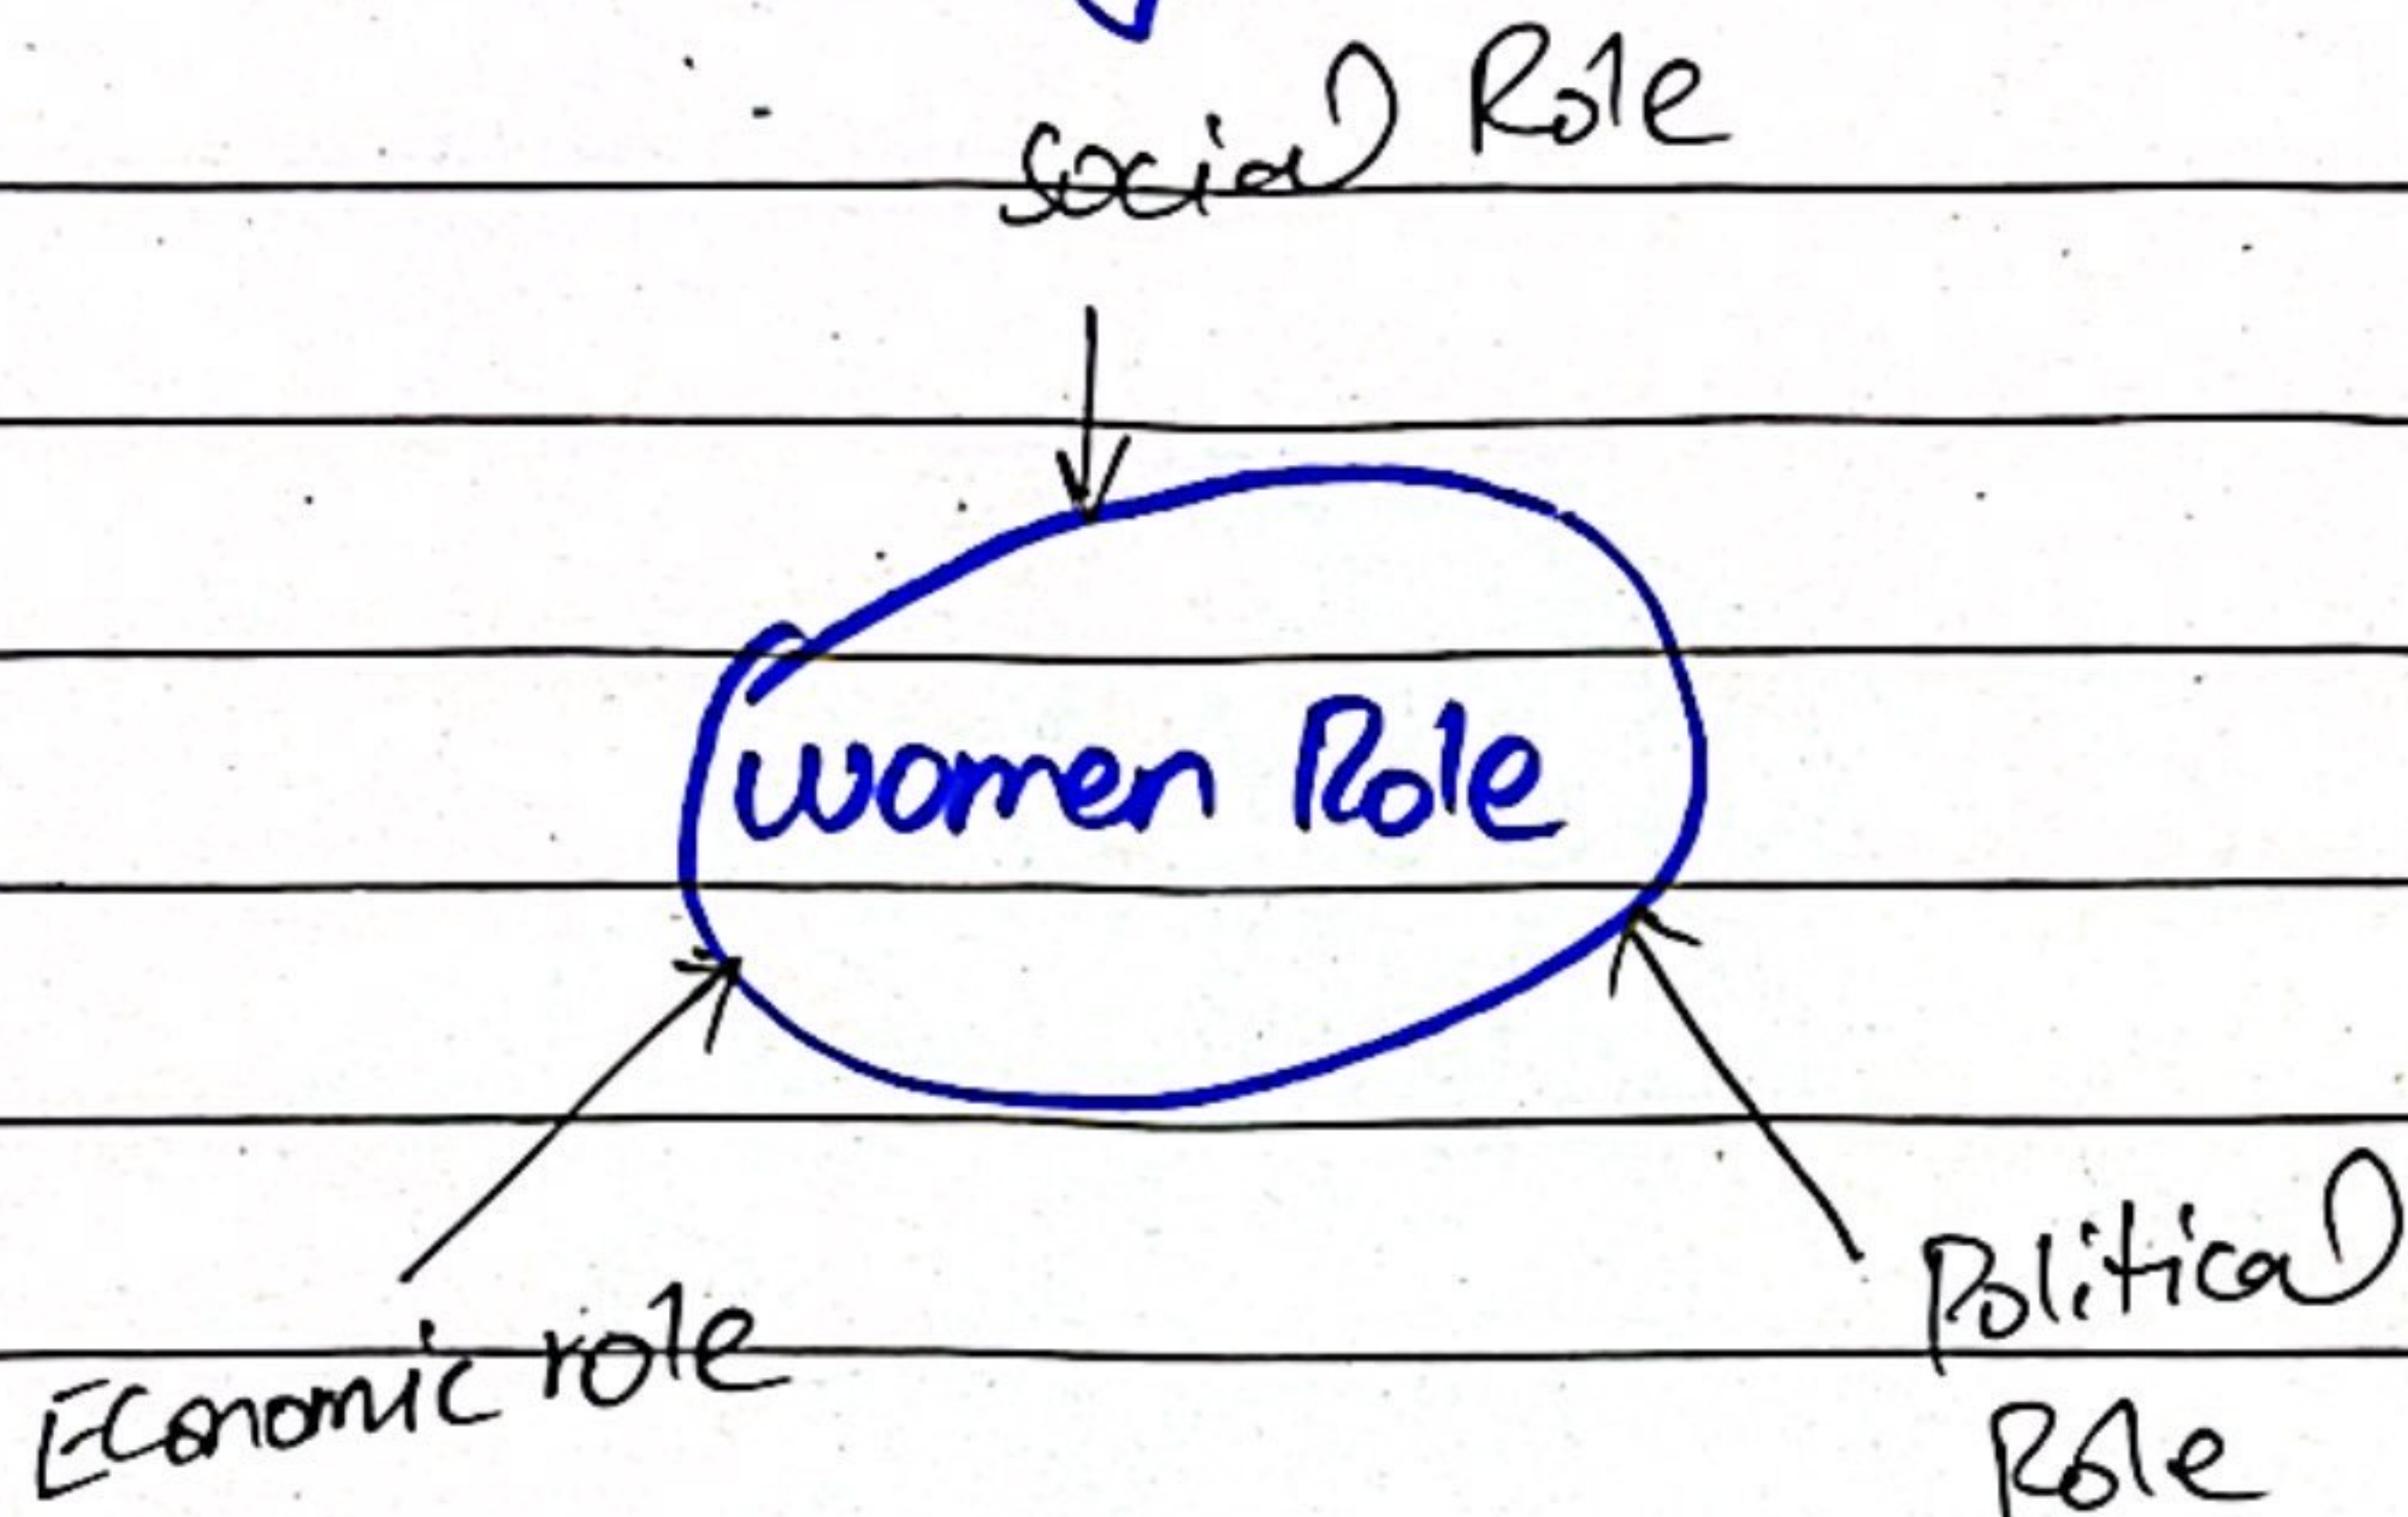 Social Role
women Role
Economic role
Political
Role